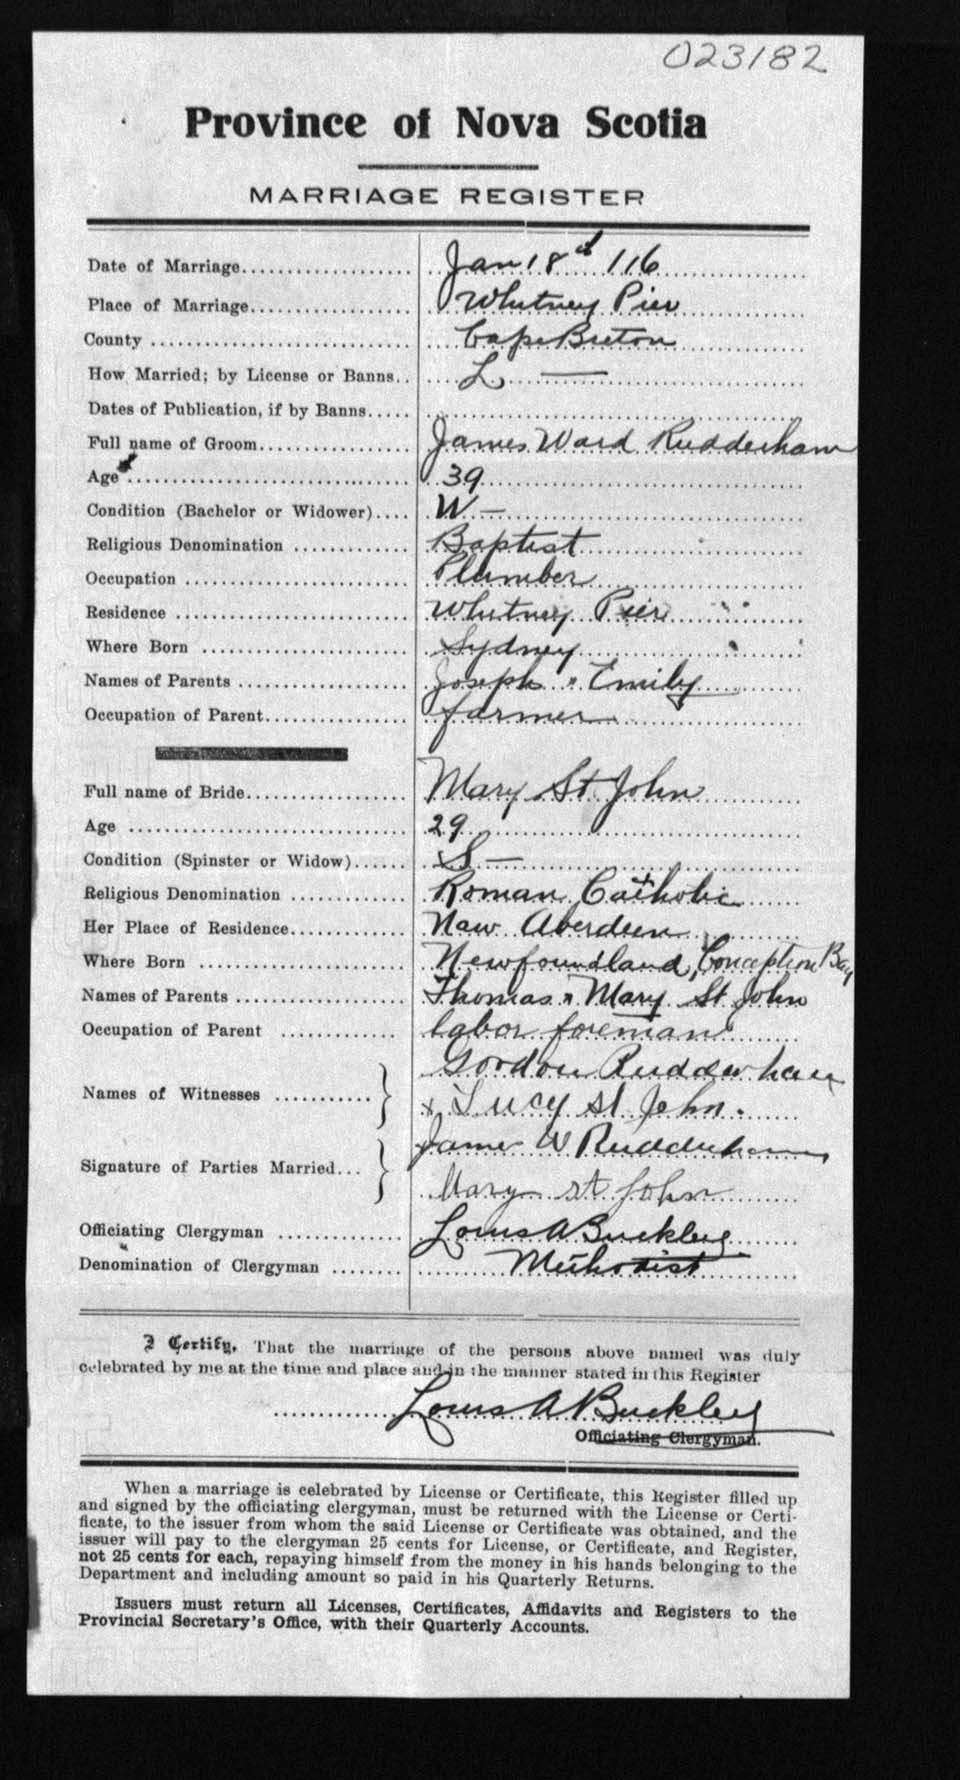 023182
Province of Nova Scotia
MARRIAGE REGISTER
Date of Marriage.................... Jan 18th 116
Place of Marriage................... Whitney Pier
County .............................. Cape Breton
How Married; by License or Banns.. L —
Dates of Publication, if by Banns.....
Full name of Groom................. James Ward Rudderham
Age.................................. 39
Condition (Bachelor or Widower).... W —
Religious Denomination .............. Baptist
Occupation .......................... Plumber
Residence ........................... Whitney Pier
Where Born .......................... Sydney
Names of Parents .................... Joseph " Emily
Occupation of Parent................. farmer
Full name of Bride................... Mary St. John
Age ................................. 29
Condition (Spinster or Widow)...... S —
Religious Denomination .............. Roman Catholic
Her Place of Residence.............. New Aberdeen
Where Born .......................... Newfoundland, Conception Bay
Names of Parents .................... Thomas " Mary St John
Occupation of Parent ............... labor foreman
Names of Witnesses ........... } Gordon Rudderham
x Lucy St John.
Signature of Parties Married... } James W Rudderham
Mary st John
Officiating Clergyman .............. Louis A Buckley
Denomination of Clergyman ........ Methodist
I Certify, That the marriage of the persons above named was duly
celebrated by me at the time and place and in the manner stated in this Register
Louis A Buckley
Officiating Clergyman.
When a marriage is celebrated by License or Certificate, this Register filled up
and signed by the officiating clergyman, must be returned with the License or Certi-
ficate, to the issuer from whom the said License or Certificate was obtained, and the
issuer will pay to the clergyman 25 cents for License, or Certificate, and Register,
not 25 cents for each, repaying himself from the money in his hands belonging to the
Department and including amount so paid in his Quarterly Returns.
Issuers must return all Licenses, Certificates, Affidavits and Registers to the
Provincial Secretary's Office, with their Quarterly Accounts.